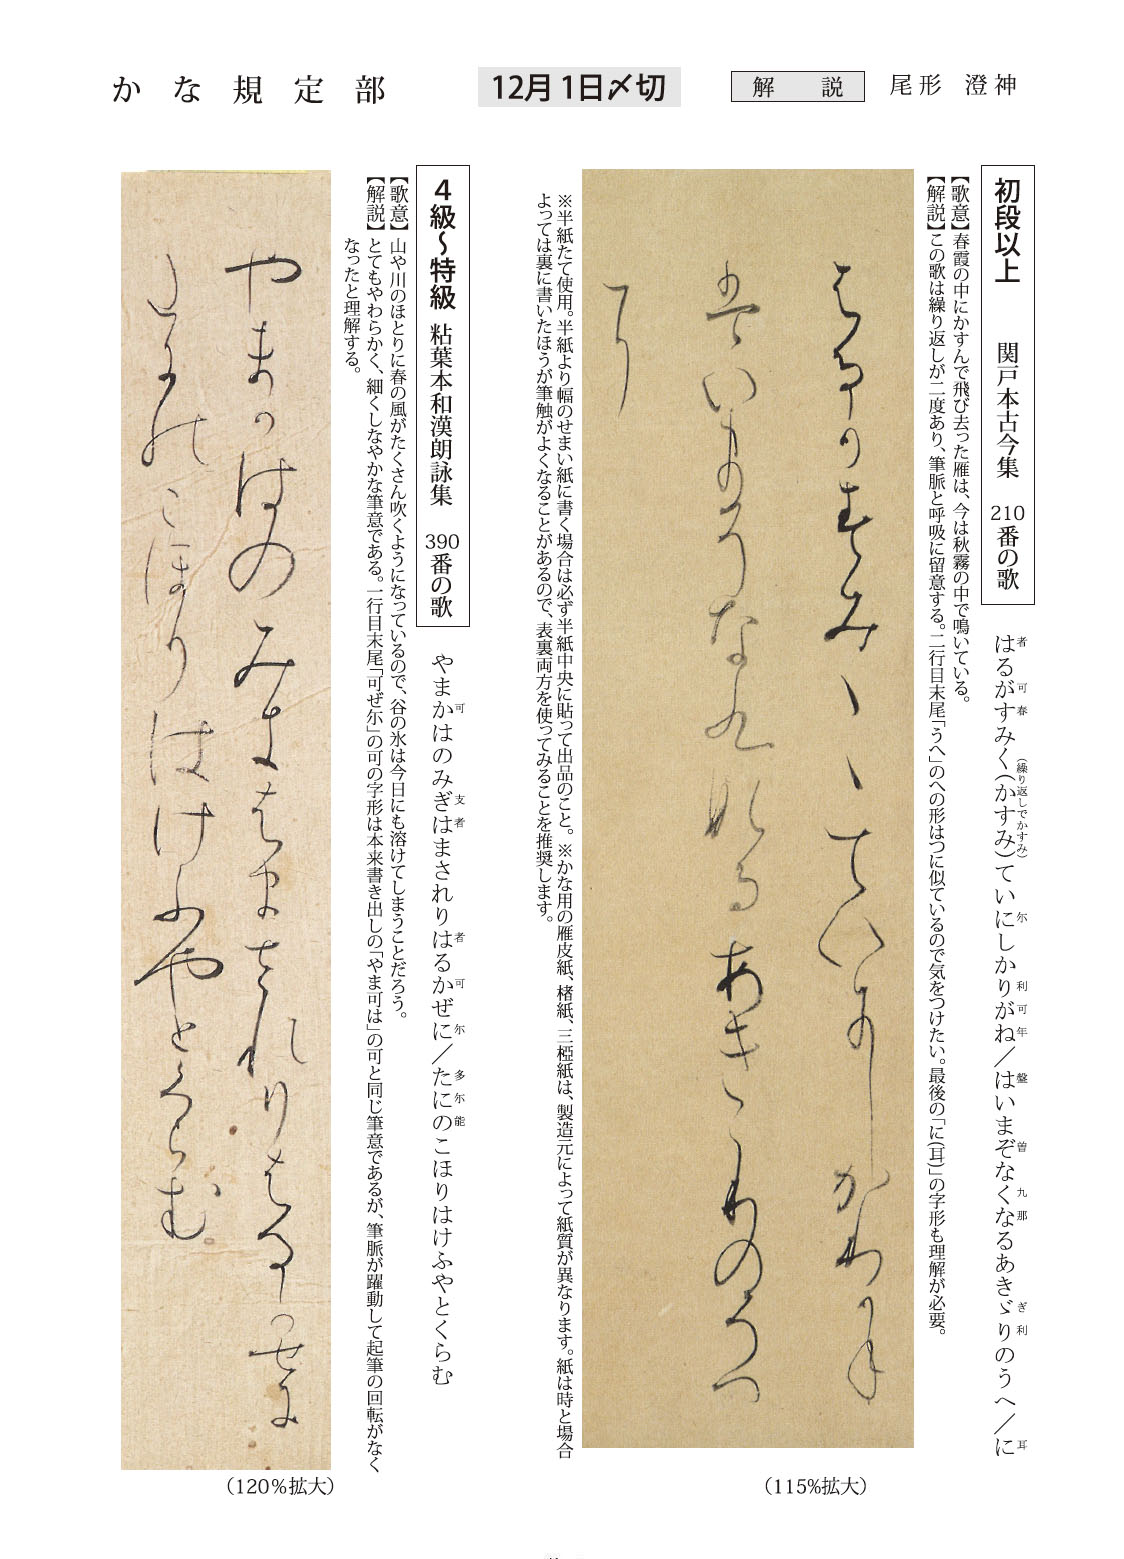 かな規定部
12月1日〆切
解説
尾形 澄神
初段以上 関戸本古今集 210番の歌
はるがすみく(かすみ)ていにしかりがね／はいまぞなくなるあきゞりのうへ／に
者 可 春 (繰り返しでかすみ) 尓 利 可 年 盤 曽 九 那 ぎ 利 耳
【歌意】春霞の中にかすんで飛び去った雁は、今は秋霧の中で鳴いている。
【解説】この歌は繰り返しが二度あり、筆脈と呼吸に留意する。二行目末尾「うへ」のへの形はつに似ているので気をつけたい。最後の「に(耳)」の字形も理解が必要。
(115%拡大)
※半紙たて使用。半紙より幅のせまい紙に書く場合は必ず半紙中央に貼って出品のこと。※かな用の雁皮紙、楮紙、三椏紙は、製造元によって紙質が異なります。紙は時と場合
よっては裏に書いたほうが筆触がよくなることがあるので、表裏両方を使ってみることを推奨します。
4級〜特級 粘葉本和漢朗詠集 390番の歌
やまかはのみぎはまされりはるかぜに／たにのこほりはけふやとくらむ
可 支 者 者 可 尓 多 尓 能
【歌意】山や川のほとりに春の風がたくさん吹くようになっているので、谷の氷は今日にも溶けてしまうことだろう。
【解説】とてもやわらかく、細くしなやかな筆意である。一行目末尾「可ぜ尓」の可の字形は本来書き出しの「やま可は」の可と同じ筆意であるが、筆脈が躍動して起筆の回転がなく
なったと理解する。
(120%拡大)